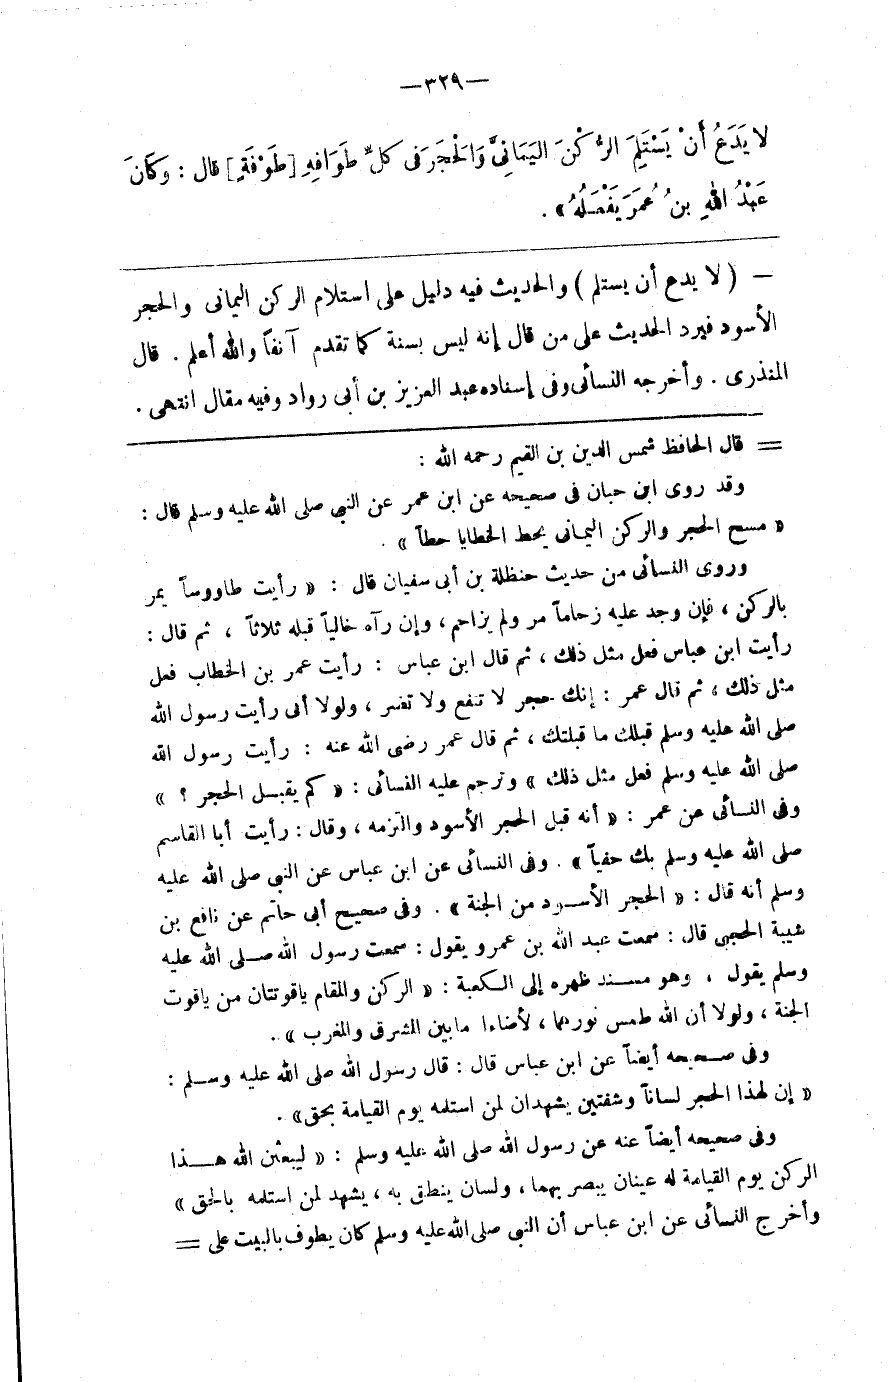 —٣٢٩—
لا يَدَعُ أَنْ يَسْتَلِمَ الرُّكْنَ اليَمَانِىَّ وَالْحَجَرَ فى كلِّ طَوَافِهِ [طَوْفَةٍ] قال : وكَانَ
عَبْدُ اللهِ بنُ عُمَرَ يَفْعَلُهُ» .
— ( لا يدع أن يستلم ) والحديث فيه دليل على استلام الركن اليمانى والحجر
الأسود فيرد الحديث على من قال إنه ليس بسنة كما تقدم آنفاً والله أعلم . قال
المنذرى . وأخرجه النسائى وفى إسناده عبد العزيز بن أبى رواد وفيه مقال انتهى .
= قال الحافظ شمس الدين بن القيم رحمه الله :
وقد روى ابن حبان فى صحيحه عن ابن عمر عن النبى صلى الله عليه وسلم قال :
« مسح الحجر والركن اليمانى يحط الخطايا حطاً » .
وروى النسائى من حديث حنظلة بن أبى سفيان قال : « رأيت طاووساً يمر
بالركن ، فإن وجد عليه زحاماً مر ولم يزاحم ، وإن رآه خالياً قبله ثلاثاً ، ثم قال :
رأيت ابن عباس فعل مثل ذلك ، ثم قال ابن عباس : رأيت عمر بن الخطاب فعل
مثل ذلك ، ثم قال عمر : إنك حجر لا تنفع ولا تضر ، ولولا أنى رأيت رسول الله
صلى الله عليه وسلم قبلك ما قبلتك ، ثم قال عمر رضى الله عنه : رأيت رسول الله
صلى الله عليه وسلم فعل مثل ذلك » وترجم عليه النسائى : « كم يقبل الحجر ؟ »
وفى النسائى عن عمر : « أنه قبل الحجر الأسود والتزمه ، وقال : رأيت أبا القاسم
صلى الله عليه وسلم بك حفياً » . وفى النسائى عن ابن عباس عن النبى صلى الله عليه
وسلم أنه قال : « الحجر الأسود من الجنة » . وفى صحيح أبى حاتم عن نافع بن
شيبة الحجبى قال : سمعت عبد الله بن عمرو يقول : سمعت رسول الله صلى الله عليه
وسلم يقول ، وهو مسند ظهره إلى الكعبة : « الركن والمقام ياقوتتان من ياقوت
الجنة ، ولولا أن الله طمس نورهما ، لأضاءا مابين المشرق والمغرب » .
وفى صحيحه أيضاً عن ابن عباس قال : قال رسول الله صلى الله عليه وسلم :
« إن لهذا الحجر لساناً وشفتين يشهدان لمن استلمه يوم القيامة بحق» .
وفى صحيحه أيضاً عنه عن رسول الله صلى الله عليه وسلم : « ليبعثن الله هذا
الركن يوم القيامة له عينان يبصر بهما ، ولسان ينطق به ، يشهد لمن استلمه بالحق »
وأخرج النسائى عن ابن عباس أن النبى صلى الله عليه وسلم كان يطوف بالبيت على =